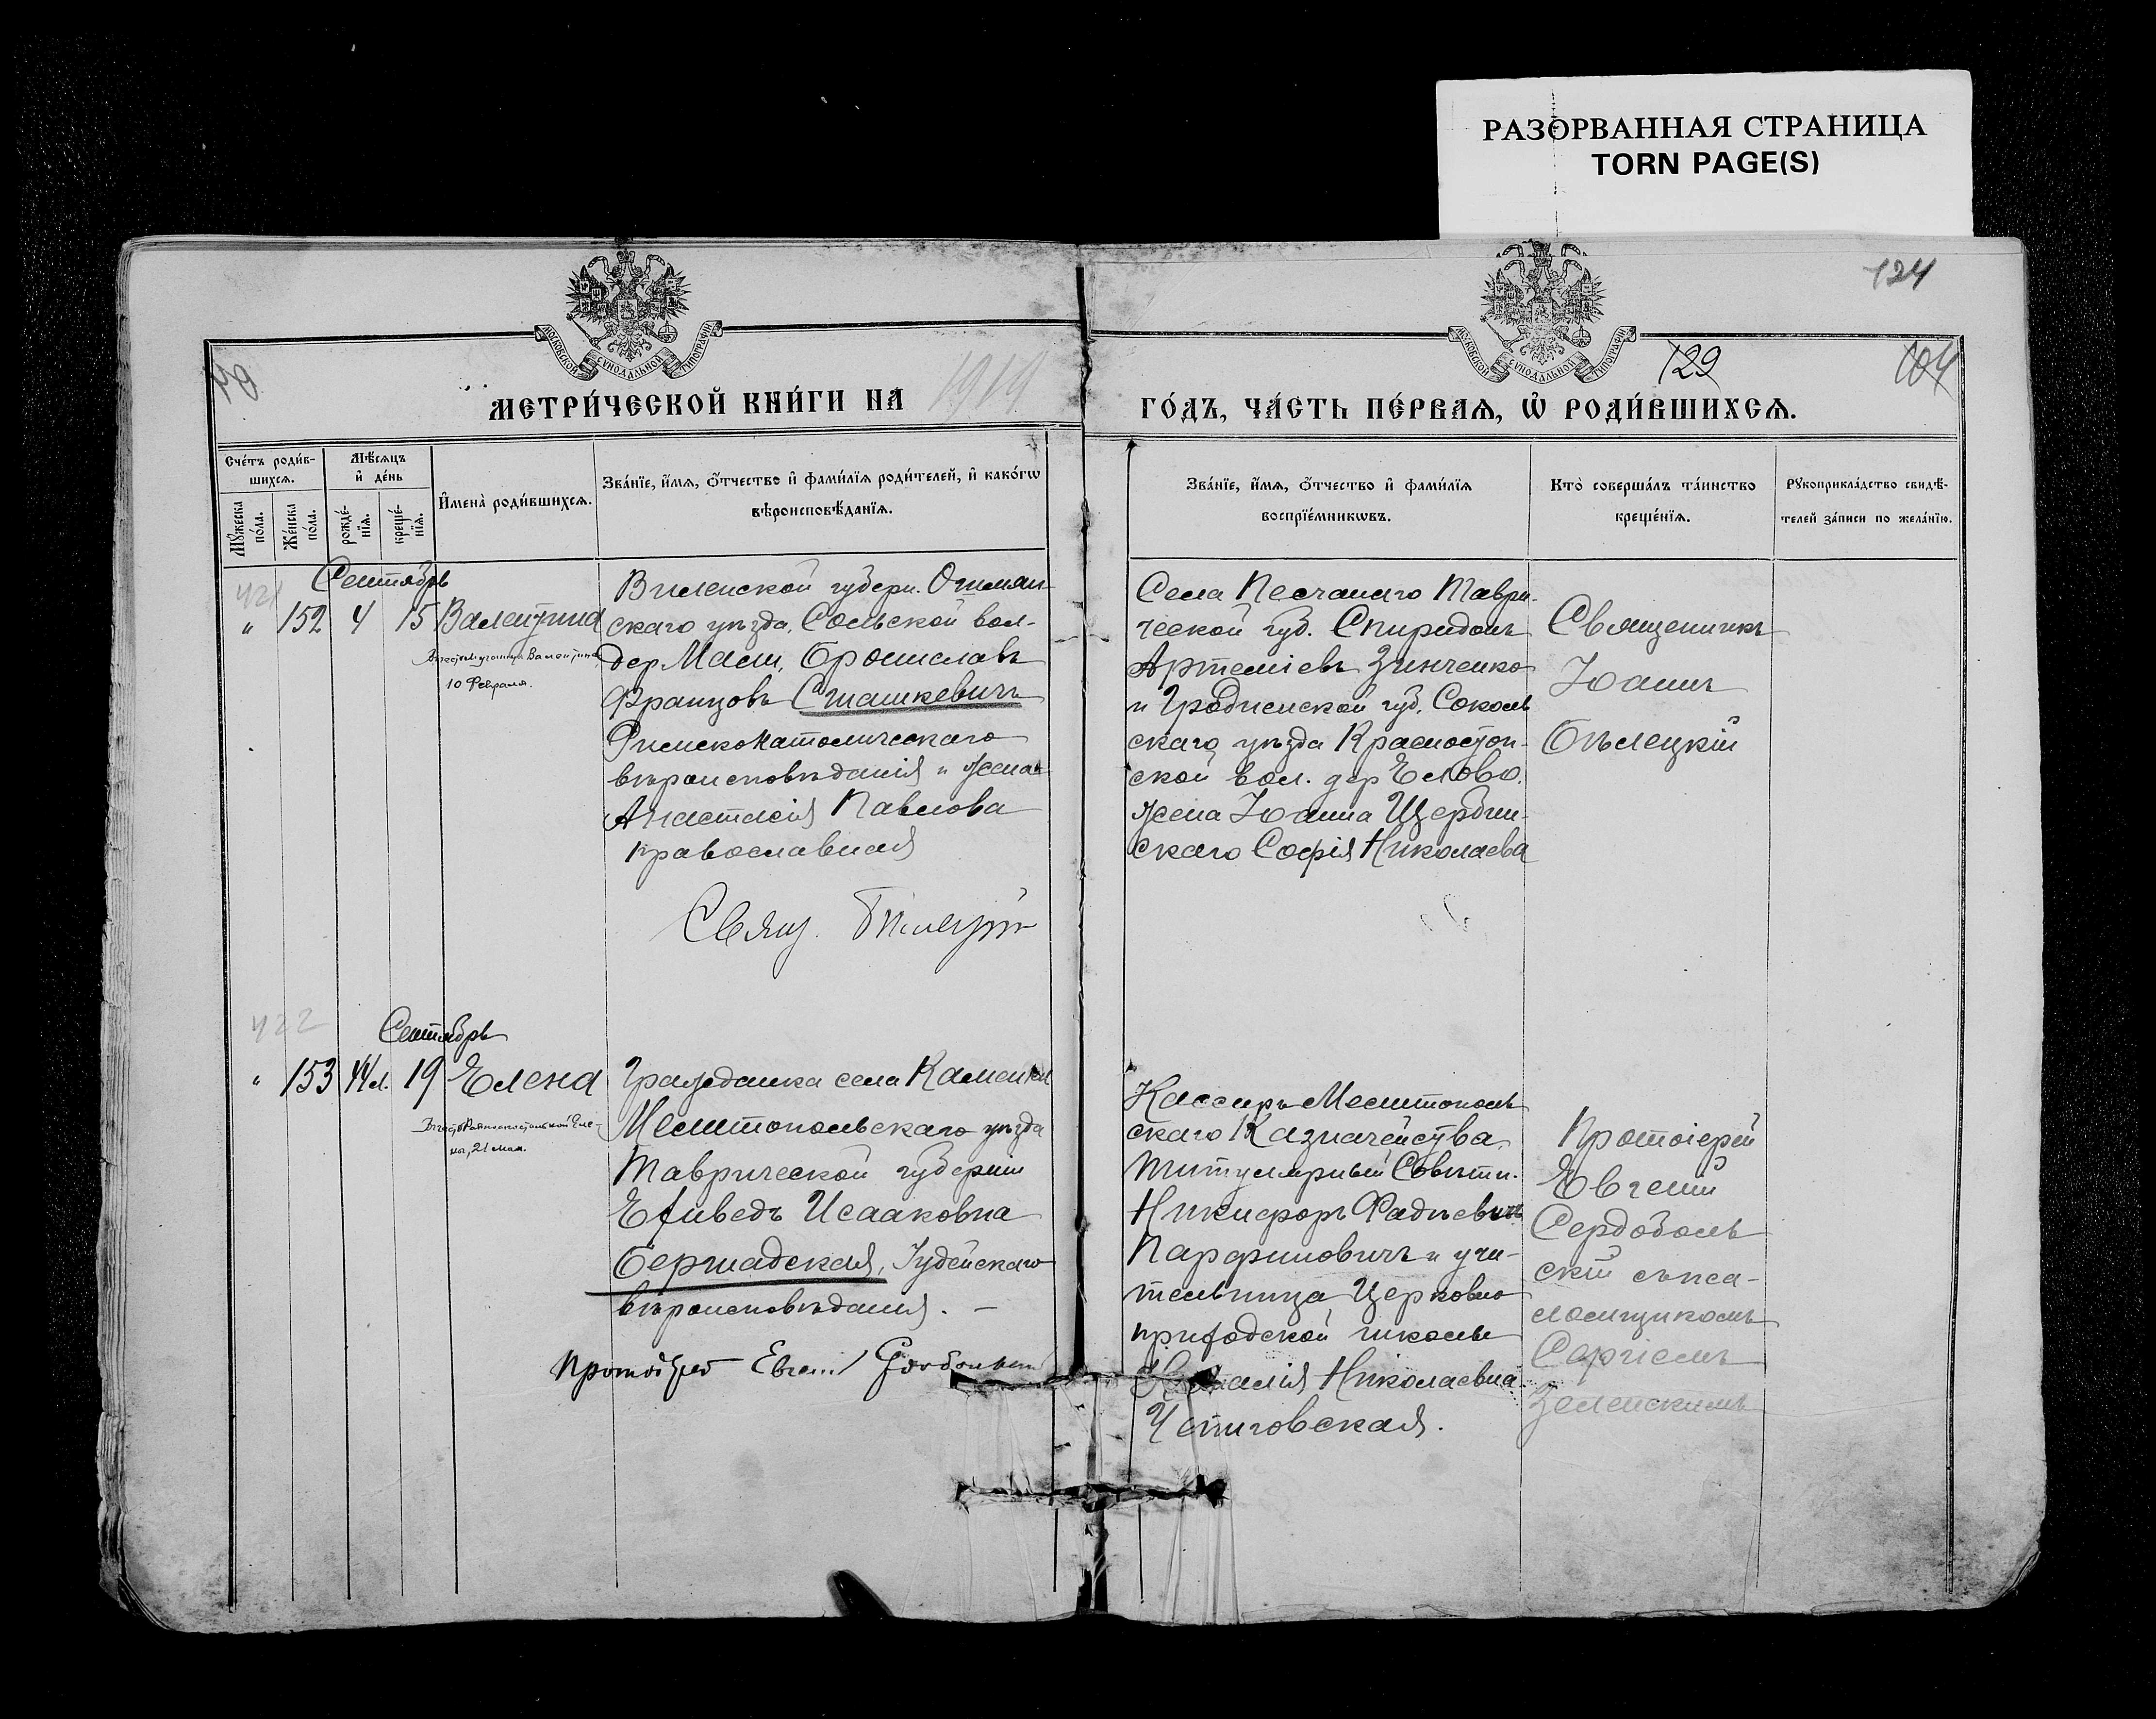 РАЗОРВАННАЯ СТРАНИЦА
TORN PAGE(S)
124
МОСКОВСКОЙ СѴНОДАЛЬНОЙ ТИПОГРАФІИ
МОСКОВСКОЙ СѴНОДАЛЬНОЙ ТИПОГРАФІИ
129
104
МЕТРИ́ЧЕСКОЙ КНИ́ГИ НА 1919
ГО́ДЪ, ЧА́СТЬ ПЕ́РВАЯ, Ѽ РОДИ́ВШИХСЯ.
Сче́тъ роди́в-
шихся.
Мꙋ́жеска по́ла.
Же́нска по́ла.
Мѣ́сяцъ
и҆ де́нь
рожде́-
нїя.
креще́-
нїя.
И҆мена̀ роди́вшихся.
Зва́нїе, и҆́мя, ѻ҆́тчество и҆ фами́лїя роди́телей, и҆ како́гѡ
вѣроисповѣ́данїя.
Зва́нїе, и҆́мя, ѻ҆́тчество и҆ фами́лїя
воспрїе́мникѡвъ.
Кто̀ соверша́лъ та́инство
креще́нїя.
Рꙋкоприкла́дство свидѣ́-
телей за́писи по жела́нїю.
421
Сентябрь
" 152 4 15 Валентина
10 Февраля.
Виленской губерн. Ошмян-
скаго уѣзда, Сольской вол.
дер Маси, Брониславъ
Францовъ Сташкевичъ
Римскокатолическаго
вѣроисповѣданія и жена
Анастасія Павлова
православная
Свящ. Бѣлецкій
Села Песчанаго Таври-
ческой губ. Спиридонъ
Артеміевъ Зинченко
и Гродненской губ. Соколь
скаго уѣзда Красностоп-
ской вол. дер Елово.
жена Іоанна Щербин-
скаго Софія Николаева
Священникъ
Іоаннъ
Бѣлецкій
422
Сентябрь
" 153 44 л. 19 Елена
В честь Равноапостольной Еле-
ны, 21 мая.
Гражданка села Каменки
Мелитопольскаго уѣзда
Таврической губерніи
Ехиведъ Исааковна
Бершадская, Іудейскаго
вѣроисповѣданія. —
Протоіерей Евгеній Сердобольскій
Кассиръ Мелитополь
скаго Казначейства,
Титулярный Совѣтн.
Никифоръ Фадѣевичъ
Парфиновичъ и учи-
тельница Церковно
приходской школы
Наталія Николаевна
Чепиговская.
Протоіерей
Евгеній
Сердоболь
скій съ пса-
ломщикомъ
Сергіемъ
Зеленскимъ